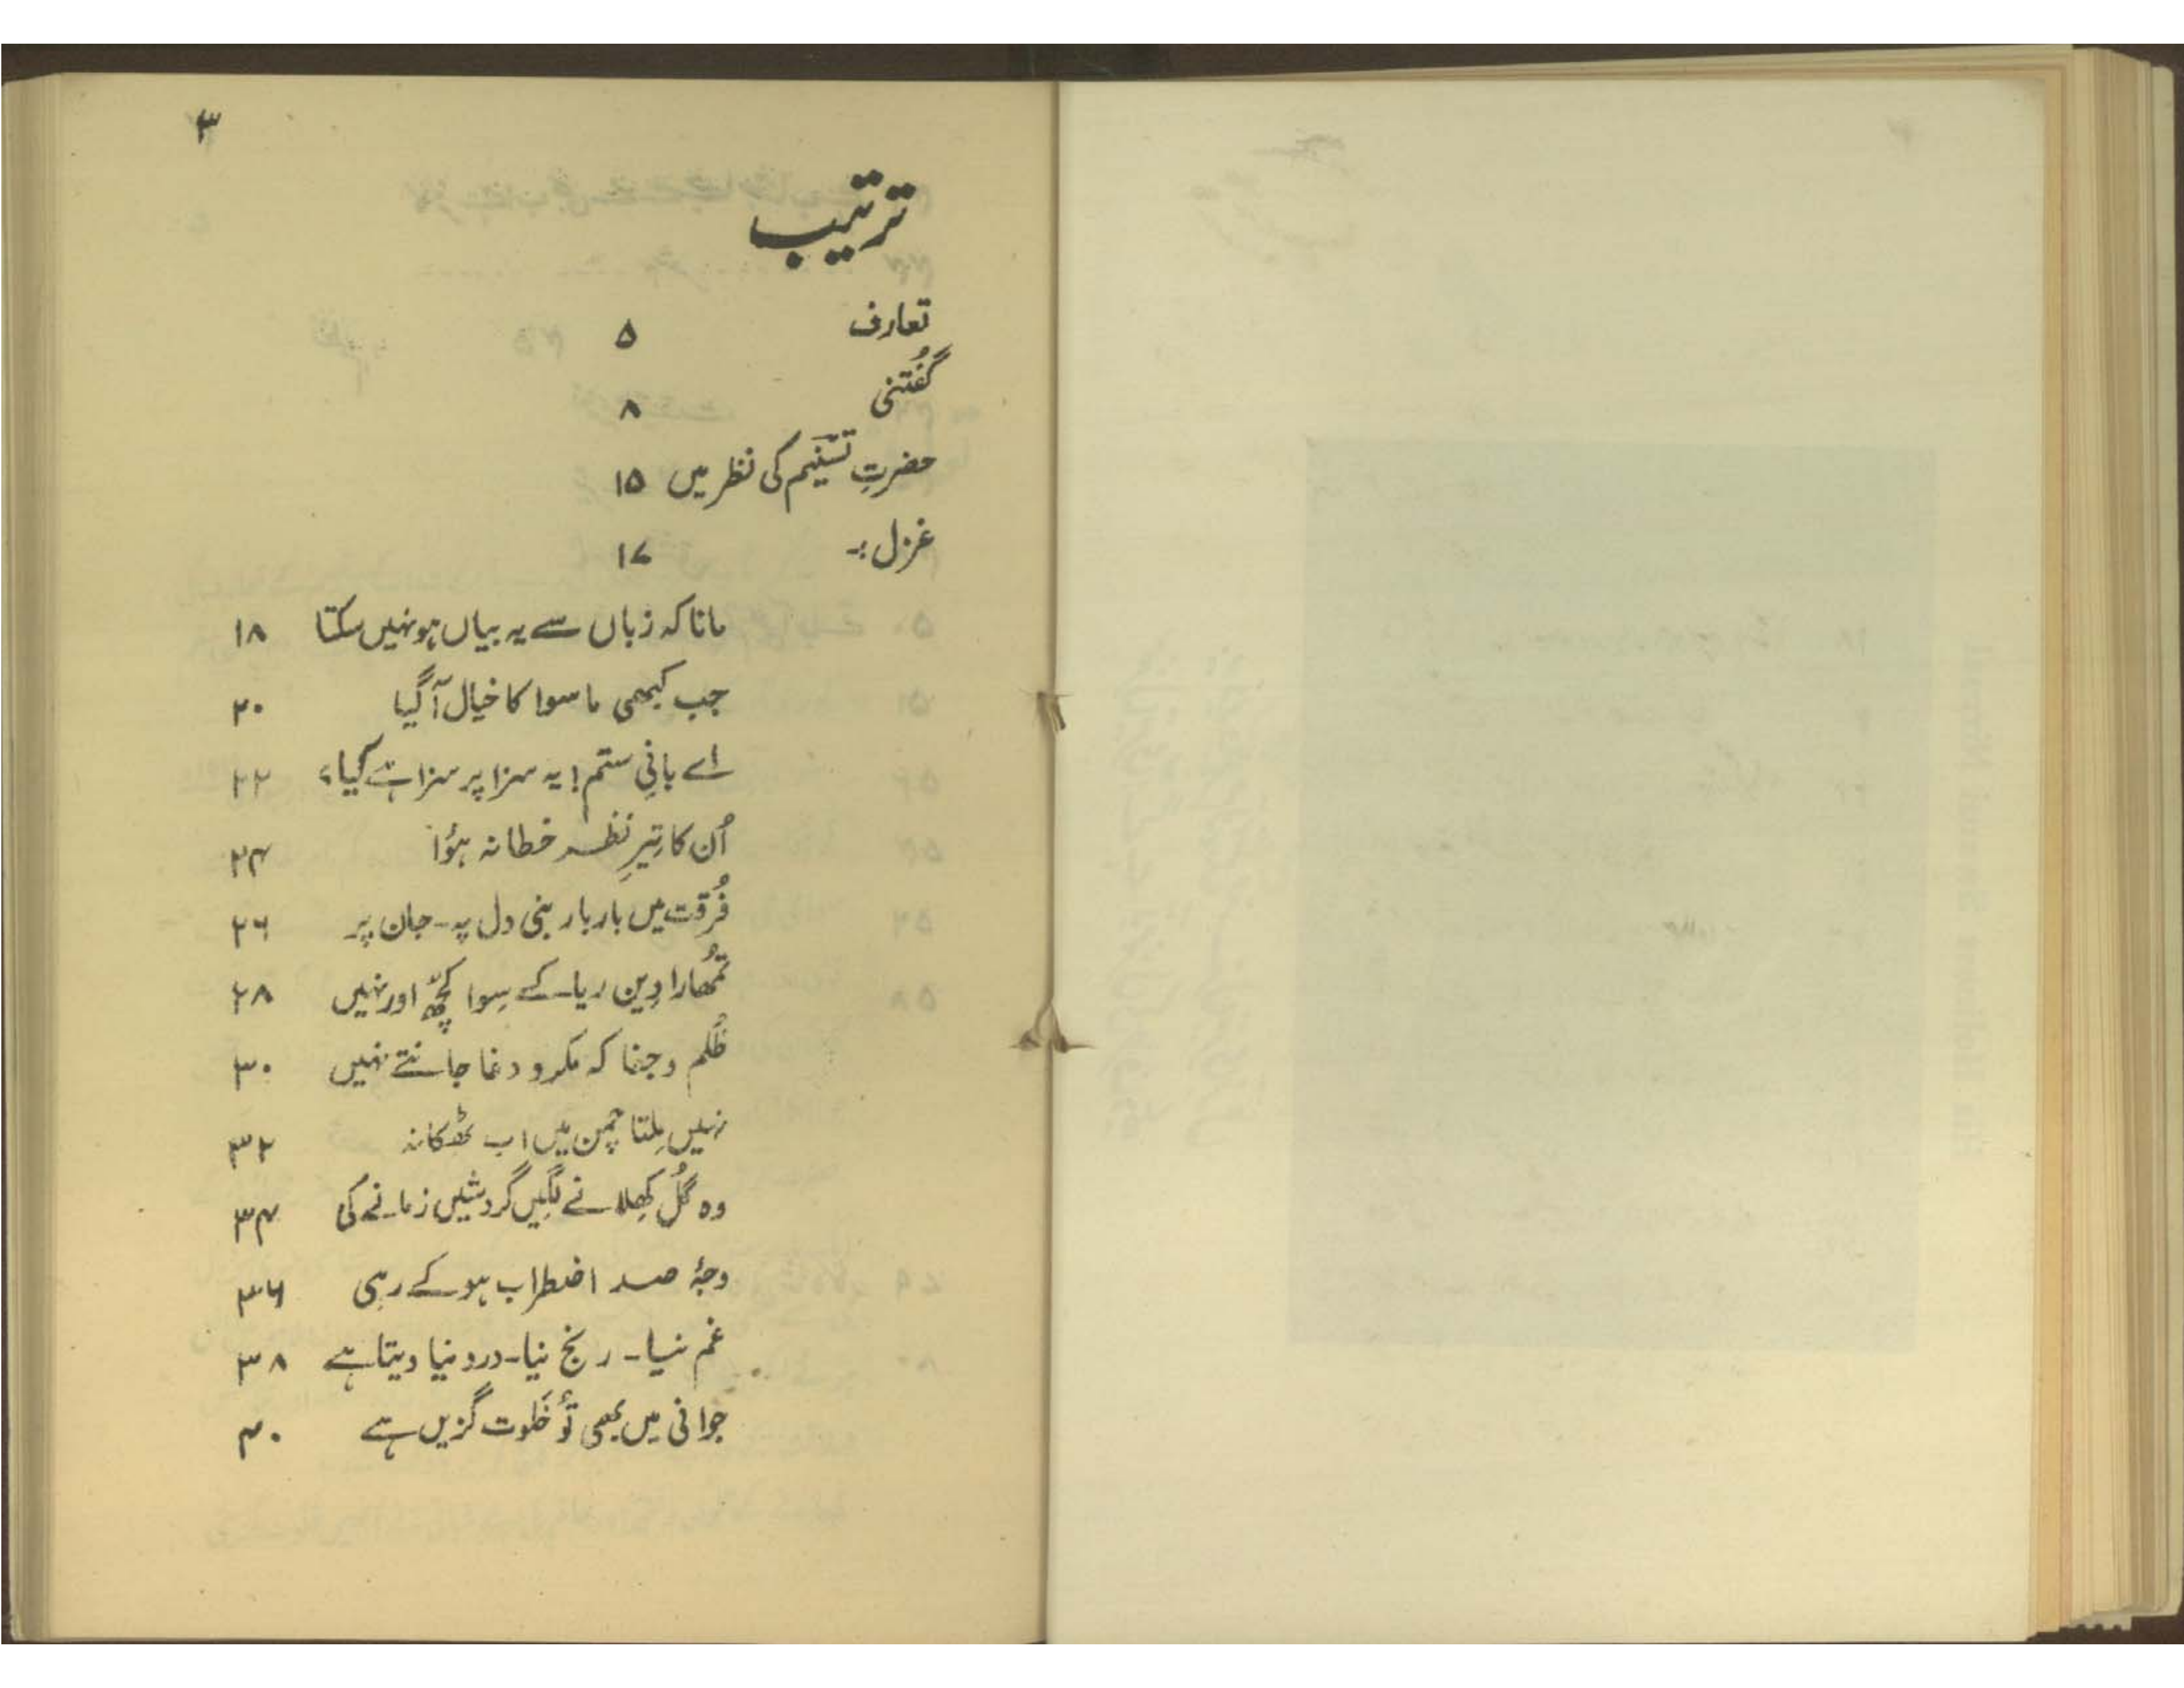 ۳
ترتیب
تعارف ۵
گُفتنی ۸
حضرتِ تسنیم کی نظر میں ۱۵
غزل :۔ ۱۷
مانا کہ زباں سے یہ بیاں ہو نہیں سکتا ۱۸
جب کبھی ماسوا کا خیال آ گیا ۲۰
اے بانیِ ستم! یہ سزا پر سزا ہے کیا؟ ۲۲
اُن کا تیرِ نظر خطا نہ ہؤا ۲۴
فُرقت میں بار بار بنی دل پہ ۔ جان پر ۲۶
تُمھارا دِین ریا کے سِوا کُچھ اور نہیں ۲۸
ظُلم و جفا کہ مکر و دغا جانتے نہیں ۳۰
نہیں مِلتا چمن میں اب ٹھکانہ ۳۲
وہ گُل کِھلانے لگیں گردشیں زمانے کی ۳۴
وجۂ صد اضطراب ہو کے رہی ۳۶
غم نیا ۔ رنج نیا ۔ درد نیا دیتا ہے ۳۸
جوانی میں بھی تُو خَلوت گزیں ہے ۴۰